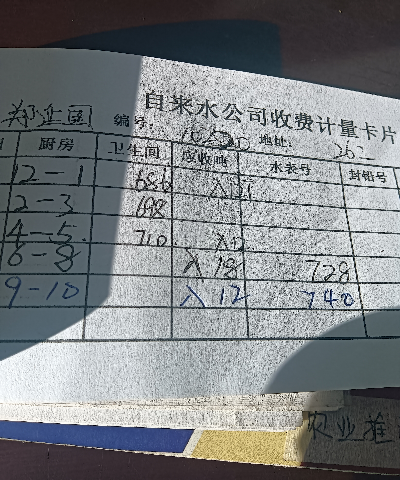 自来水公司收费计量卡片
郑 国 编号: 地址: 262
厨房 卫生间 应收吨 水表号 封铅号
12-1 686 入12
2-3 698
4-5. 710 入12
6-8 入18 728
9-10 入12 740
农业